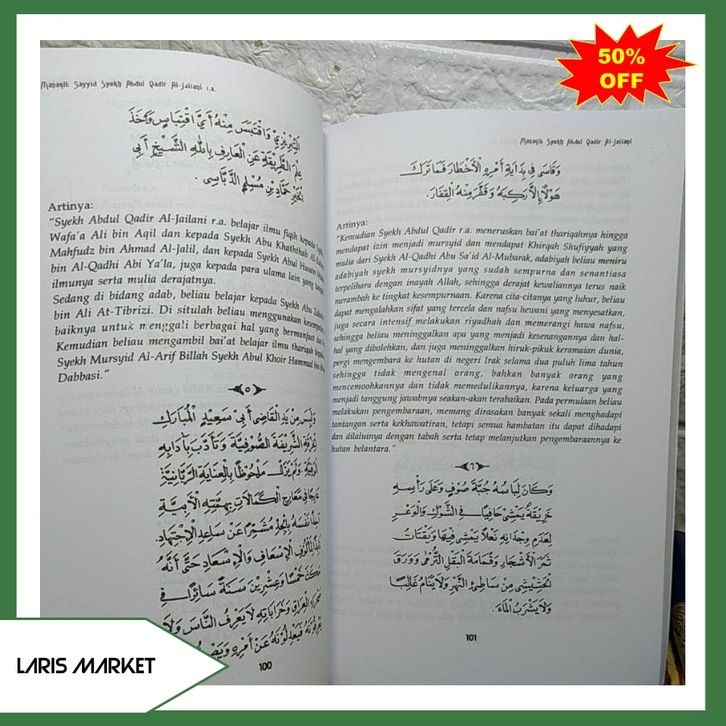 50%
OFF
Manaqib Sayyid Syekh Abdul Qadir Al-Jailani r.a.
التِّبْرِيْزِيْ وَاقْتَبَسَ مِنْهُ أَيَّ اقْتِبَاسٍ وَأَخَذَ
عِلْمَ الطَّرِيْقَةِ عَنِ الْعَارِفِ بِاللهِ الشَّيْخِ أَبِي
الْخَيْرِ حَمَّادِ بْنِ مُسْلِمٍ الدَّبَّاسِيِّ.
Artinya:
"Syekh Abdul Qadir Al-Jailani r.a. belajar ilmu fiqih kepada
Wafa'a Ali bin Aqil dan kepada Syekh Abu Khaththab Al-
Mahfudz bin Ahmad Al-Jalil, dan kepada Syekh Abul Husain
bin Al-Qadhi Abi Ya'la, juga kepada para ulama lain yang
ilmunya serta mulia derajatnya.
Sedang di bidang adab, beliau belajar kepada Syekh Abu
bin Ali At-Tibrizi. Di situlah beliau menggunakan
baiknya untuk menggali berbagai hal yang bermanfaat
Kemudian beliau mengambil bai'at belajar ilmu thariqah kepada
Syekh Mursyid Al-Arif Billah Syekh Abul Khoir Hammad bin
Dabbasi."
٥
وَلَبِسَ مِنْ يَدِ الْقَاضِيْ أَبِيْ سَعِيْدٍ الْمُبَارَكِ
الْخِرْقَةَ الشَّرِيْفَةَ الصُّوْفِيَّةَ وَتَأَدَّبَ بِآدَابِهِ
الْوَفِيَّةِ وَلَمْ يَزَلْ مَلْحُوْظًا بِالْعِنَايَةِ الرَّبَّانِيَّةِ
عَارِجًا فِيْ مَعَارِجِ الْكَمَالَاتِ بِهِمَّتِهِ الْأَبِيَّةِ
نَفْسَهُ بِالْجِدِّ مُشَمِّرًا عَنْ سَاعِدِ الْإِجْتِهَادِ.
الْمَأْلُوْفِ الْإِسْعَافِ وَالْإِسْعَادِ حَتَّى أَنَّهُ
مَكَثَ خَمْسًا وَعِشْرِيْنَ سَنَةً سَائِرًا فِيْ
الْعِرَاقِ وَخَرَابَاتِهِ لَا يَعْرِفُ النَّاسَ وَلَا
يَعْرِفُوْنَهُ فَيَعْذِلُوْنَهُ عَنْ أَمْرِهِ
100
Manaqib Syekh Abdul Qadir Al-Jailani
وَقَاسَى فِيْ بِدَايَةِ أَمْرِهِ الْأَخْطَارَ فَمَا تَرَكَ
هَوْلًا إِلَّا رَكِبَهُ وَقَفَّرَ مِنْهُ الْقِفَارَ.
Artinya:
"Kemudian Syekh Abdul Qadir r.a. meneruskan bai'at thariqahnya hingga
mendapat izin menjadi mursyid dan mendapat Khirqah Shufiyyah yang
mulia dari Syekh Al-Qadhi Abu Sa'id Al-Mubarak, adabiyah beliau meniru
adabiyah syekh mursyidnya yang sudah sempurna dan senantiasa
terpelihara dengan inayah Allah, sehingga derajat kewaliannya terus naik
merambah ke tingkat kesempurnaan. Karena cita-citanya yang luhur, beliau
dapat mengalahkan sifat yang tercela dan nafsu hewani yang menyesatkan,
juga secara intensif melakukan riyadhah dan memerangi hawa nafsu,
sehingga beliau meninggalkan apa yang menjadi kesenangannya dan hal-
hal yang dibolehkan, dan juga meninggalkan hiruk-pikuk keramaian dunia,
pergi mengembara ke hutan di negeri Irak selama dua puluh lima tahun
sehingga tidak mengenal orang, bahkan banyak orang yang
mencemoohkannya dan tidak memedulikannya, karena keluarga yang
menjadi tanggung jawabnya seakan-akan terabaikan. Pada permulaan beliau
melakukan pengembaraan, memang dirasakan banyak sekali menghadapi
tantangan serta kekhawatiran, tetapi semua hambatan itu dapat dihadapi
dan dilaluinya dengan tabah serta tetap melanjutkan pengembaraannya ke
hutan belantara."
٦
وَكَانَ لِبَاسُهُ جُبَّةَ صُوْفٍ وَعَلَى رَأْسِهِ
خُرَيْقَةٌ يَمْشِيْ حَافِيًا فِي الشَّوْكِ وَالْوَعْرِ
لِعَدَمِ وِجْدَانِهِ نَعْلًا يَمْشِيْ فِيْهَا وَيَقْتَاتُ
ثَمَرَ الْأَشْجَارِ وَقُمَامَةَ الْبَقْلِ التُّرْمَى وَوَرَقَ
الْحَشِيْشِ مِنْ سَاطِئِ النَّهْرِ وَلَا يَنَامُ غَالِبًا
وَلَا يَشْرَبُ الْمَاءَ.
101
LARIS MARKET